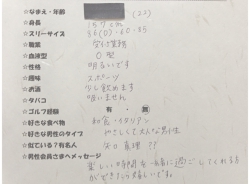 ☆なまえ・年齢 (22)
☆身長 157cm
☆スリーサイズ 86(D)・60・85
☆職業
☆血液型 O型
☆性格 明るいです
☆趣味 スポーツ
☆お酒 少し飲めます
☆タバコ 吸いません
☆ゴルフ経験 有・無
☆好きな食べ物 和食・イタリアン
☆好きな男性のタイプ やさしくて大人な男性
☆似ている?有名人 矢口真理??
☆男性会員さまへメッセージ
楽しい時間を一緒に過ごしてくれる方
ができたら嬉しいです。